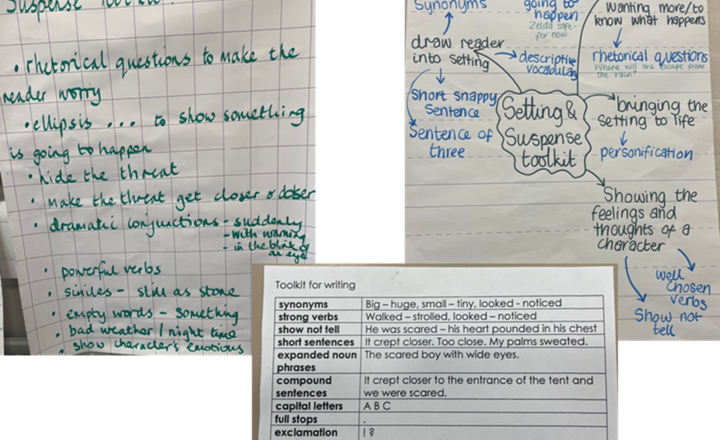 Suspense
• rhetorical questions to make the
reader worry
• ellipsis ... to show something
is going to happen
• hide the threat
• make the threat get closer & closer
• dramatic conjunctions - suddenly
- with warning
- in the blink of
an eye
• powerful verbs
• similes - still as stone
• empty words - something
• bad weather / night time
• show character's emotions
Synonyms
going to
happen
Zelda safe
for now
wanting more/to
know what happens
draw reader
into setting
descriptive
vocabulary
rhetorical questions
Where will she escape from
the rain?
Short snappy
Sentence
Sentence of
three
Setting &
Suspense
toolkit
bringing the
setting to life
personification
Showing the
feelings and
thoughts of a
character
well
chosen
verbs
Show not
tell
Toolkit for writing
synonyms Big – huge, small – tiny, looked - noticed
strong verbs Walked – strolled, looked – noticed
show not tell He was scared – his heart pounded in his chest
short sentences It crept closer. Too close. My palms sweated.
expanded noun The scared boy with wide eyes.
phrases
compound It crept closer to the entrance of the tent and
sentences we were scared.
capital letters A B C
full stops .
exclamation ! ?